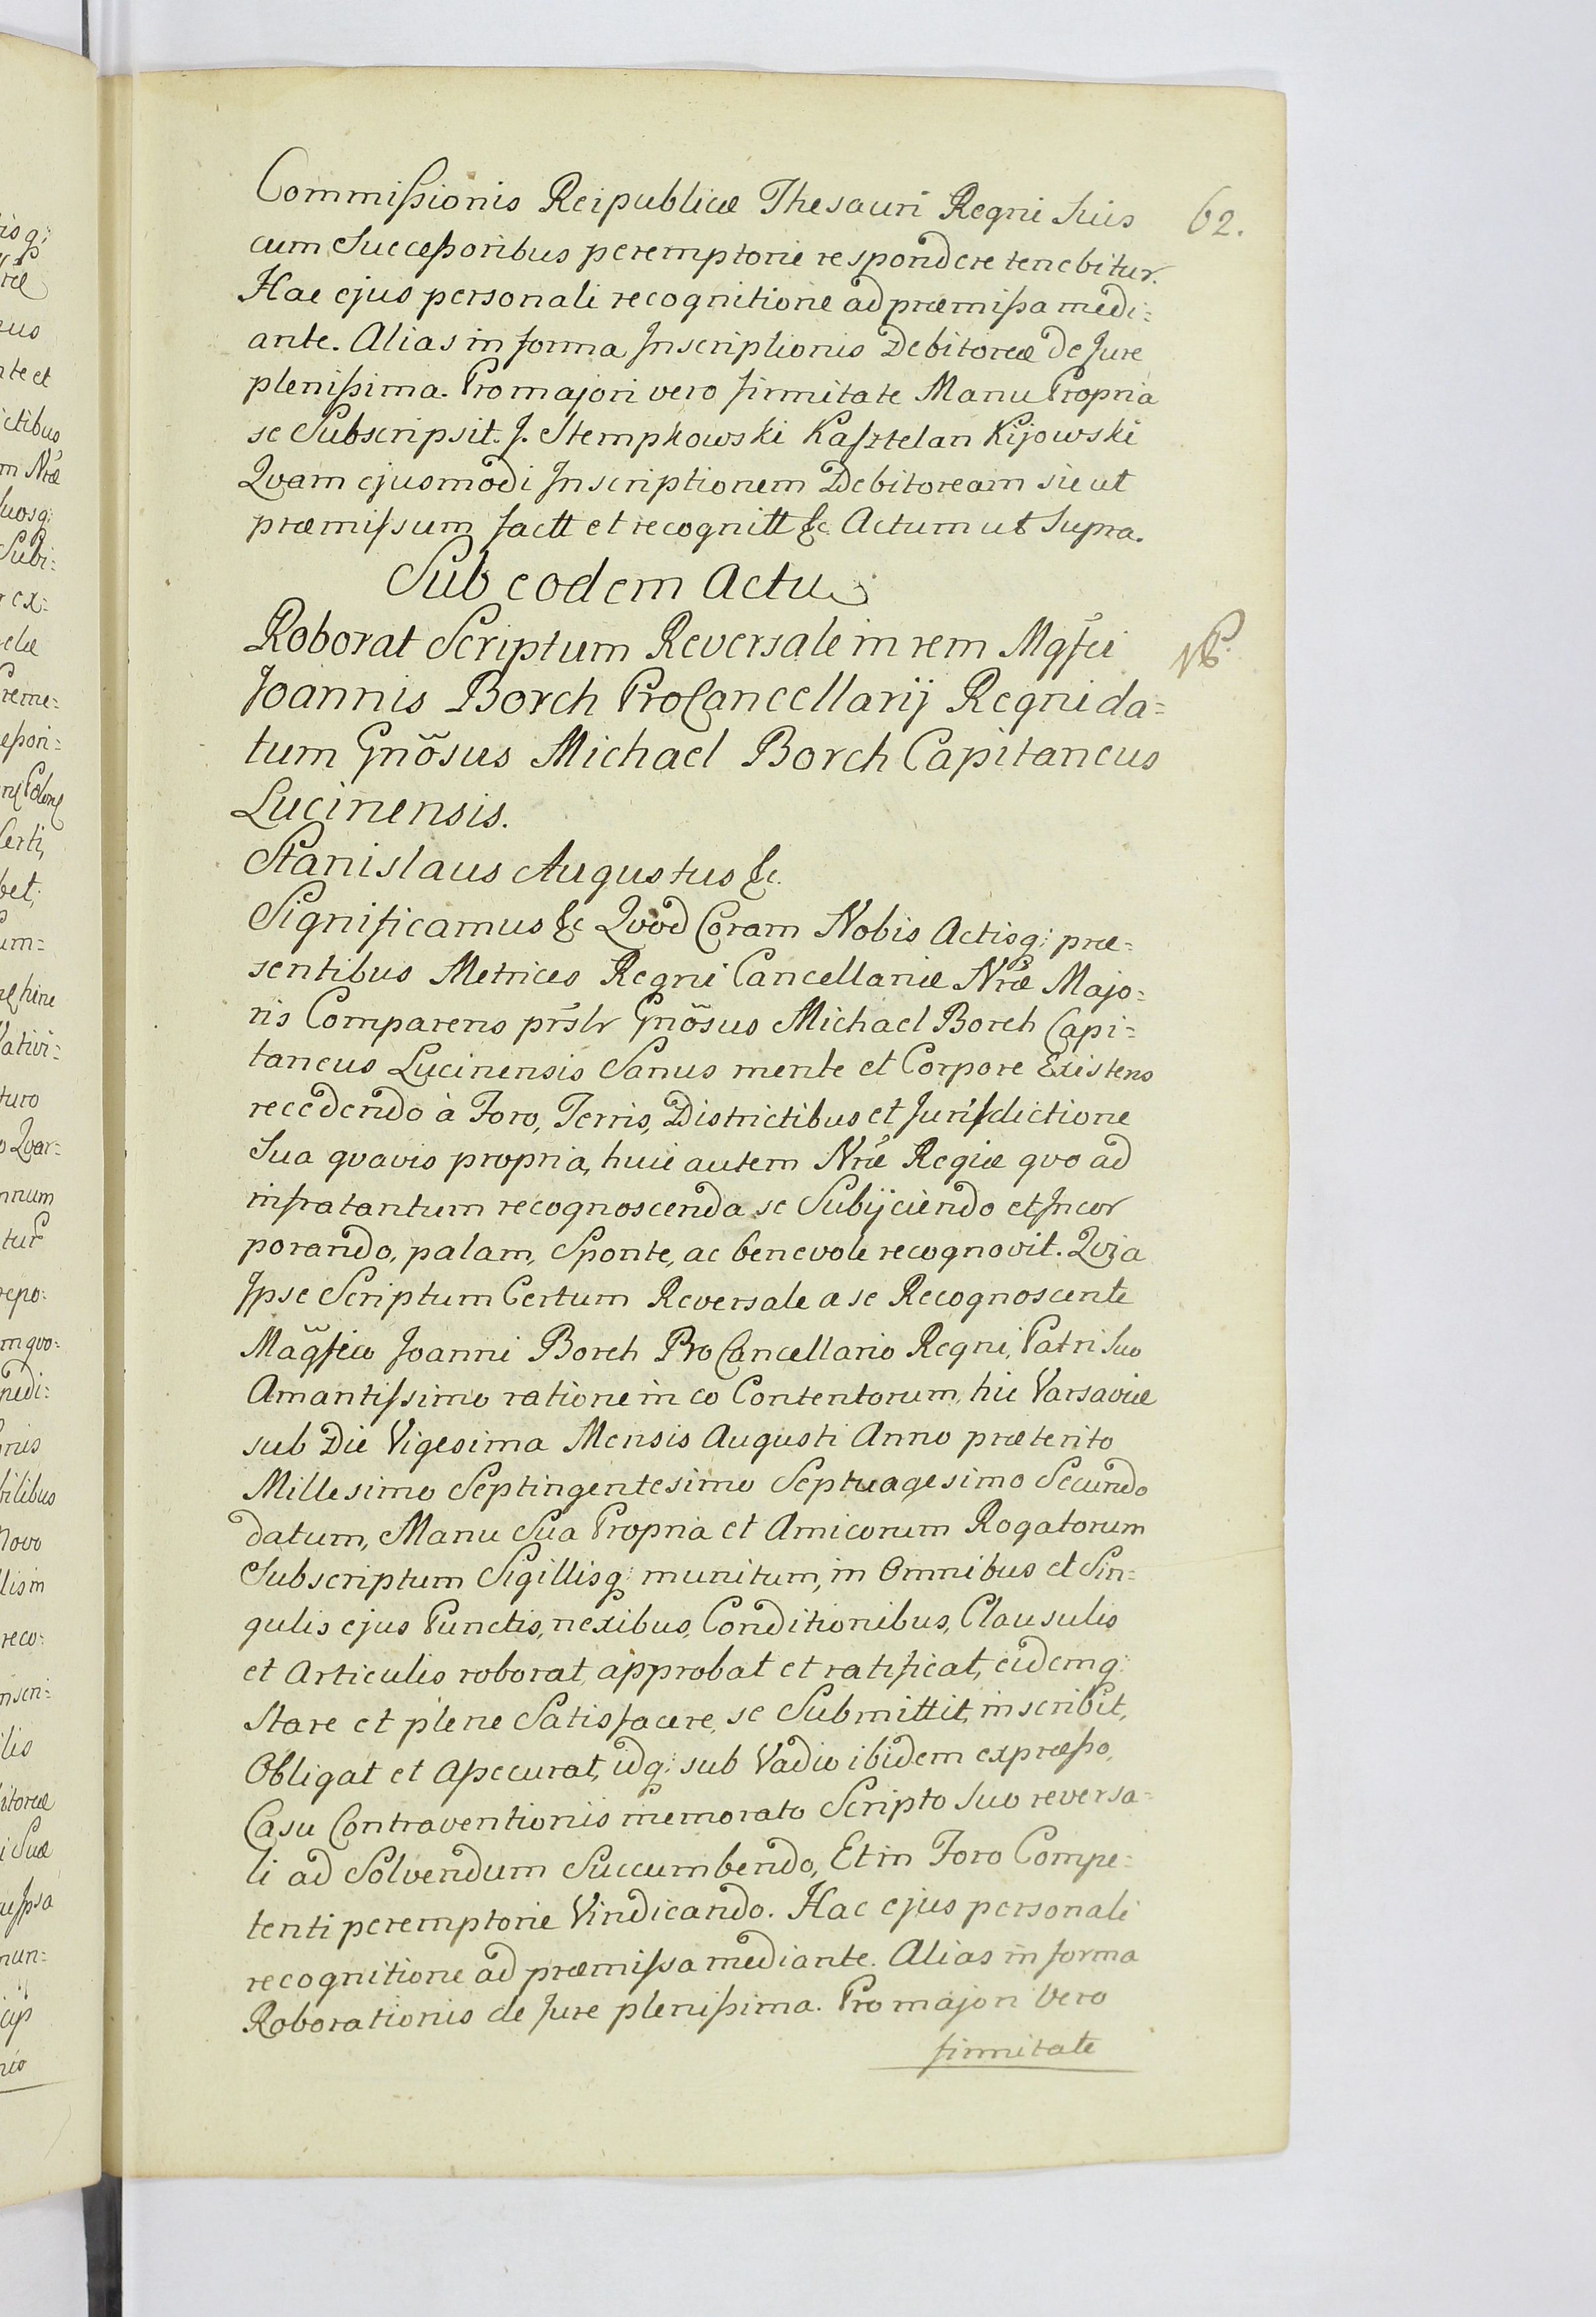 Commissionis Reipublicæ Thesauri Regni suis
62.
cum Successoribus peremptorie respondere tenebitur.
Hac ejus personali recognitione ad præmissa medi=
ante. Alias in forma Inscriptionis Debitoreæ de Jure
plenissima. Pro majori vero firmitate Manu Propria
se Subscripsit. J. Stempkowski Kasztelan Kijowski
Qvam ejusmodi Inscriptionem Debitoream sic ut
præmissum factt et recognitt &c. Actum ut Supra.
Sub eodem Actu
Roborat Scriptum Reversale in rem Mgfci
NB.
Joannis Borch ProCancellarij Regni da=
tum Gnõsus Michael Borch Capitaneus
Lucinensis.
Stanislaus Augustus &c.
Significamus &c Qvod Coram Nobis Actisq: præ=
sentibus Metrices Regni Cancellariæ Nræ Majo=
ris Comparens prslr Gnõsus Michael Borch Capi=
taneus Lucinensis Sanus mente et Corpore Existens
recedendo à Foro, Terris, Districtibus et Jurisdictione
Sua qvavis propria, huic autem Nræ Regiæ qvo ad
infratantum recognoscenda se Subijciendo et Incor
porando, palam, Sponte, ac benevole recognovit. Qvia
Ipse Scriptum Certum Reversale a se Recognoscente
Magfico Joanni Borch Pro Cancellario Regni, Patri Suo
Amantissimo ratione in eo Contentorum, hic Varsaviæ
sub Die Vigesima Mensis Augusti Anno præterito
Millesimo Septingentesimo Septuagesimo Secundo
datum, Manu Sua Propria et Amicorum Rogatorum
Subscriptum Sigillisq: munitum, in Omnibus et Sin=
gulis ejus Punctis, nexibus, Conditionibus, Clausulis
et Articulis roborat, approbat et ratificat, eidemq:
Stare et plene Satisfacere, se Submittit, inscribit,
Obligat et Assecurat, idq: sub Vadio ibidem expresso,
Casu Contraventionis memorato Scripto Suo reversa=
li ad Solvendum Succumbendo, Et in Foro Compe=
tenti peremptorie Vindicando. Hac ejus personali
recognitione ad præmissa mediante. Alias in forma
Roborationis de Jure plenissima. Pro majori Vero
firmitate